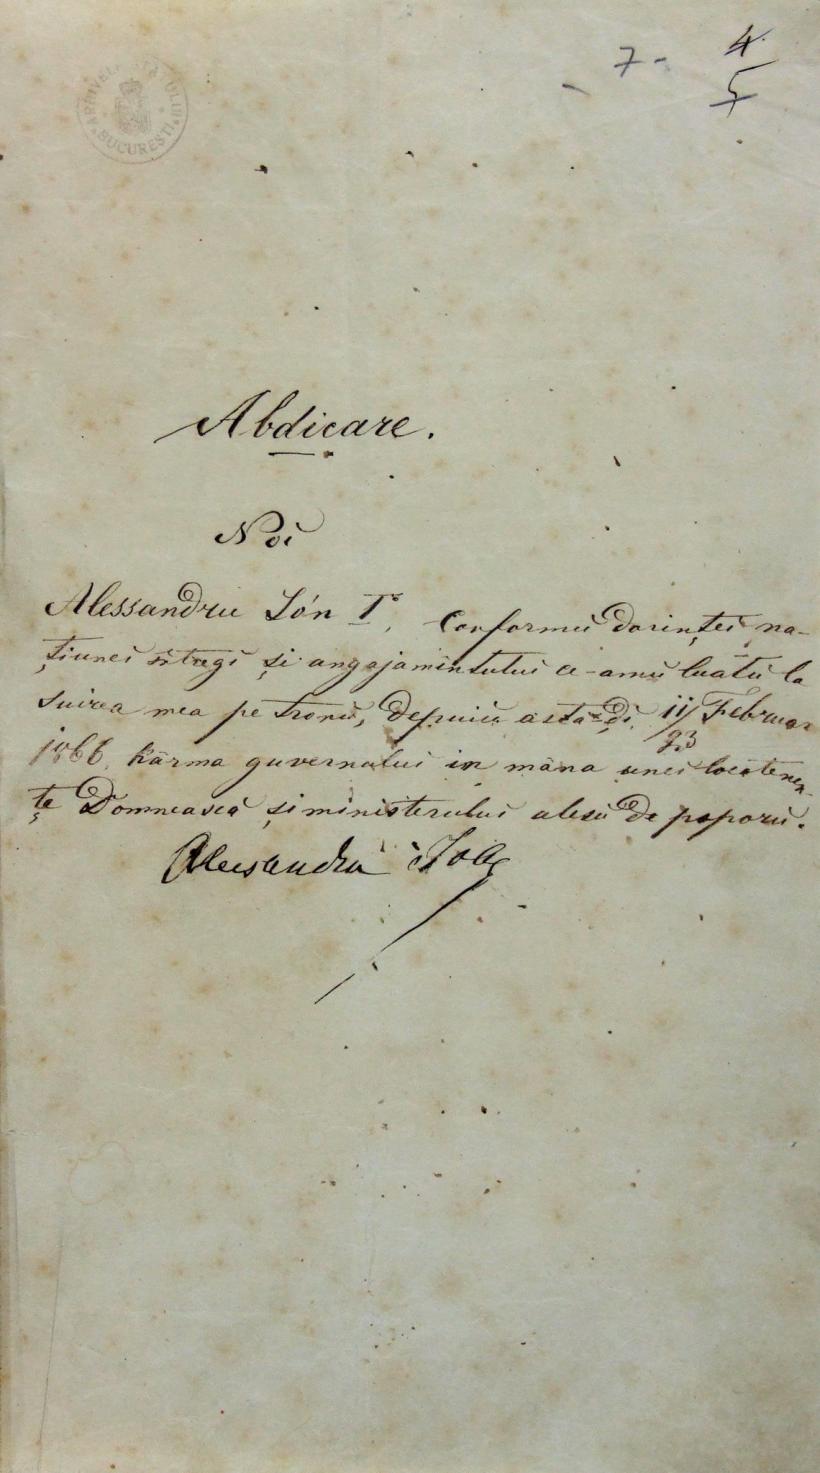 ARHIVELE STATULUI
BUCURESTI
7 - 4
5
Abdicare.
Noi
Alessandru Ión I°, Conformŭ dorinței na-
țiunei întregĭ și angajamîntuluĭ ce-amŭ luatŭ la
suirea mea pe tronŭ, depuiŭ asta-ḑi 11/23 Februar
1866 kârma guvernuluĭ in mâna uneĭ locotenen-
țe Domneascĭ și ministeruluĭ alesŭ de poporŭ.
Alecsandru Ioan